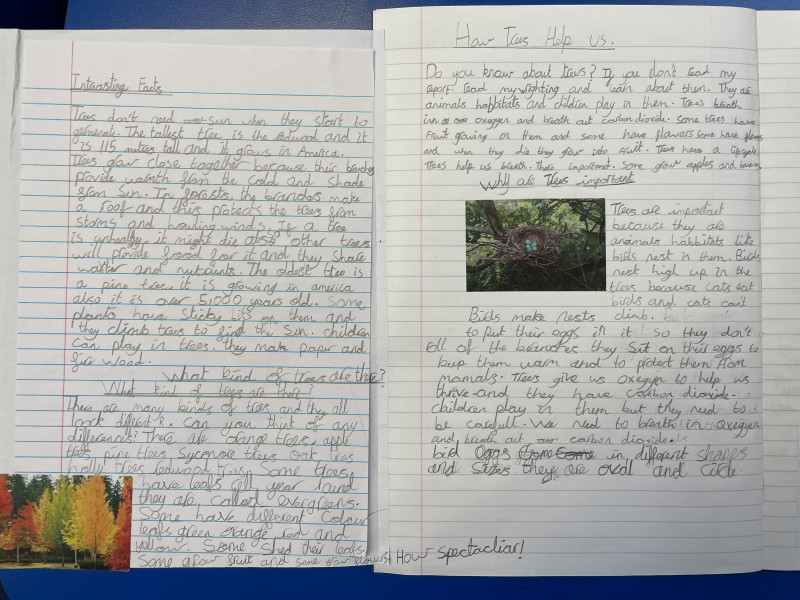 Intreasting Facts
Trees don't need sun when they start to
generate. The tallest tree is the redwood and it
is 115 mitres tall and it grows in America.
Trees grow close together because their branches
provide warmth from the cold and shade
from sun. In forests, the branches make
a roof and this protects the trees from
storms and howling winds. If a tree
is unhealty, it might die other trees
will provide food for it and they share
water and nutriants. The oldest tree is
a pine tree, it is growing in america
also it is over 5,000 years old. Some
plants have sticky bits on them and
they climb trees to find the sun. children
can play in trees. they make paper and
fire wood.
What kind of trees are there?
What kind of trees are there?
There are many kinds of trees, and they all
look different. Can you think of any
differences? There are orange trees, apple
trees, pine trees, Sycomore trees oak trees
holly trees, Some trees
have leafs all year round
they are called evergreens.
Some have different colour
leafs green orange red and
yellow. Some shed their leafs
Some grow fruit and some grow flowers! How spectacliar!
How Trees Help us.
Do you know about trees? If you don't read my
report read my wrighting and lean about them. They are
animals habbitats and children play in them. Trees breath
in oxegen and breath out carbon dioxide. Some trees have
fruit growing on them and some have flowers some have
and when they die they grow into fruit. Trees have a lifecycle.
Trees help us breath. There important. Some grow apples and
Why are Trees important
Trees are important
because they are
animals habbitats like
birds nest in them. Birds
nest high up in the
trees because cats eat
birds and cats cant
climb.
Birds make nests
to put their eggs in it so they don't
fall of the branches they sit on their eggs to
keep them warm and to protect them from
mamals. Trees give us oxegen to help us
thrive and they have carbon dioxide.
children play in them but they need to
be carefull. We need to breath in oxegen
and breath out carbon dioxide.
bird eggs in different shapes
and Sizes they are oval and circle.